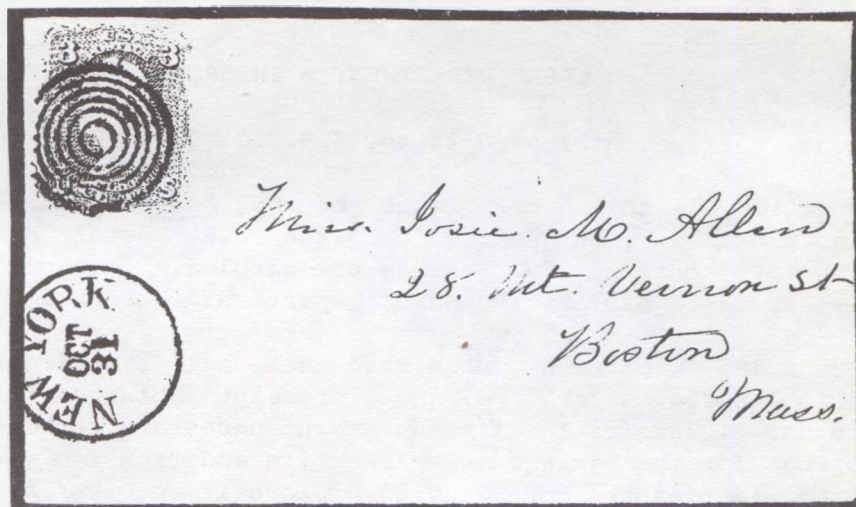 3 3
3
NEW YORK
OCT
31
Miss. Josie. M. Allen
28. Mt. Vernon St
Boston
Mass.